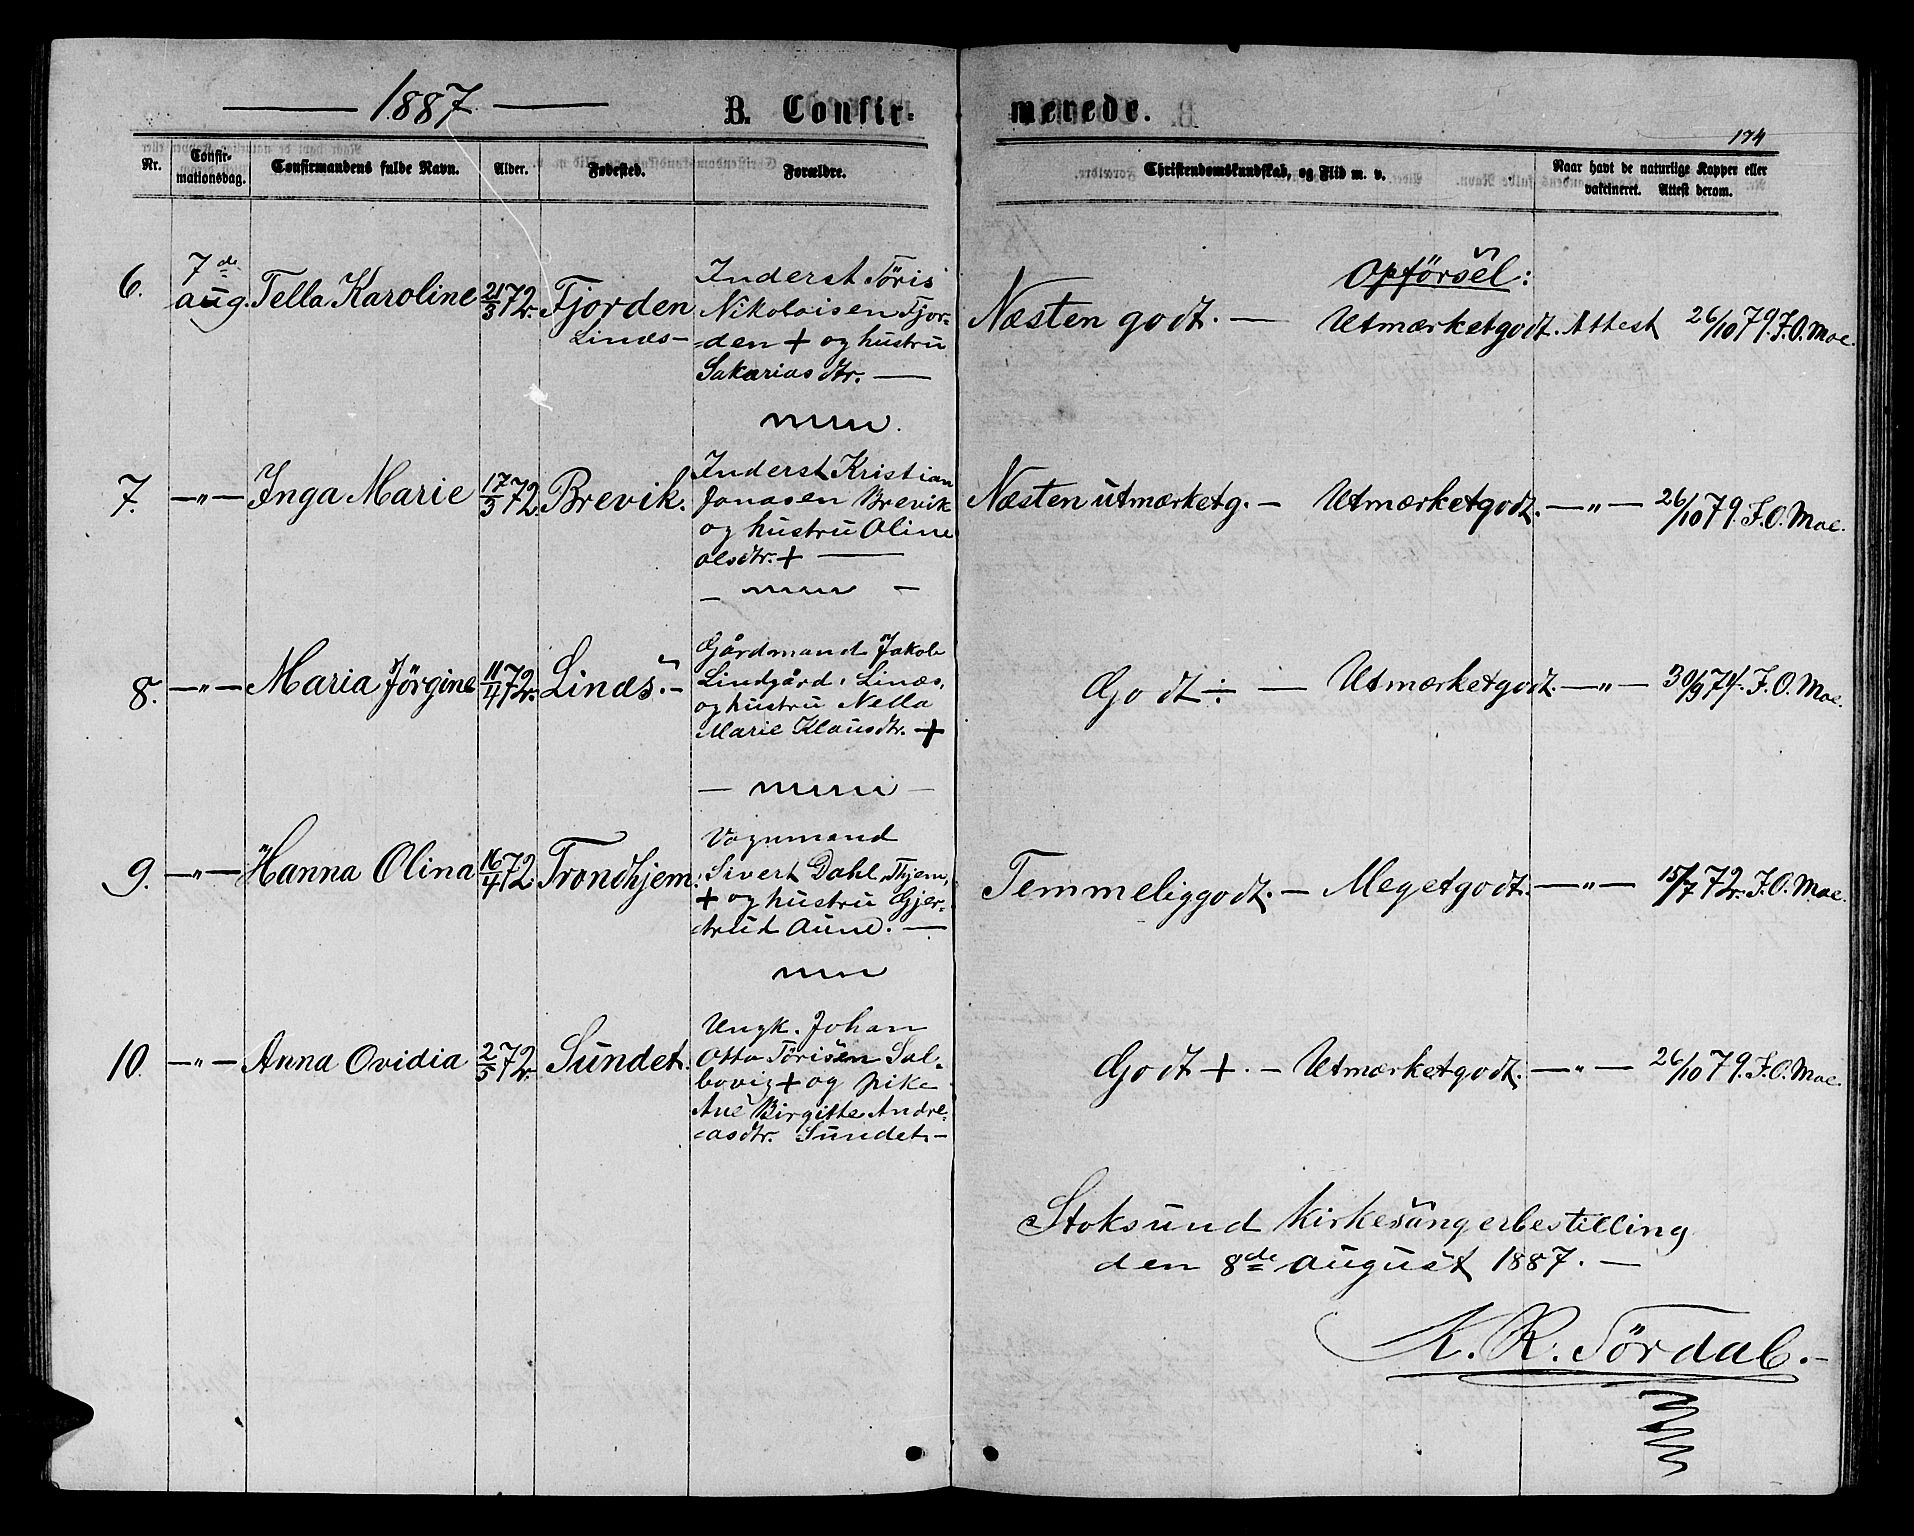 1887
B. Confirmerede.
174
Nr.
Confirmationsdag.
Confirmandens fulde Navn.
Alder.
Fødested.
Forældre.
Christendomskundskab, og Flid m. v.
Naar havt de naturlige Kopper eller vakcineret. Attest derom.
6.
7de aug.
Tella Karoline
21/3 72.
Fjorden
Linæs-
Inderst Töris
Nikolaisen Fjor-
=den + og hustru
Sakariasdtr. —
Næsten godt. —
Opførsel:
Utmærketgodt.
Attest
26/10 79. F.O. Moe.
7.
—"—
Inga Marie
17/3 72.
Brevik.
Inderst Kristian
Jonasen Brevik
og hustru Oline
olsdtr. + —
Næsten utmærketg. —
Utmærketgodt.
—"—
26/10 79. F.O. Moe.
8.
—"—
Maria Jörgine
11/4 72.
Linæs. -
Gårdmand Jakob
Lindgård, Linæs,
og hustru Nella
Marie Klausdtr. +
Godt ÷ —
Utmærketgodt.
—"—
30/9 74. F.O. Moe.
9.
—"—
Hanna Olina
16/4 72.
Trondhjem.
Vognmand
Sivert Dahl, Thjem,
+ og hustru Gjer-
trud Aune. —
Temmeliggodt. —
Megetgodt.
—"—
15/7 72. F.O. Moe.
10.
—"—
Anna Ovidia
2/5 72.
Sundet.
Ungk. Johan
Otto Törisen Sal-
bovig + og pike
Ane Birgitte Andre-
=asdtr. Sundet. -
Godt +. —
Utmærketgodt.
—"—
26/10 79. F.O. Moe.
Stoksund kirkesångerbestilling
den 8de august 1887. —
K. R. Sördal. -